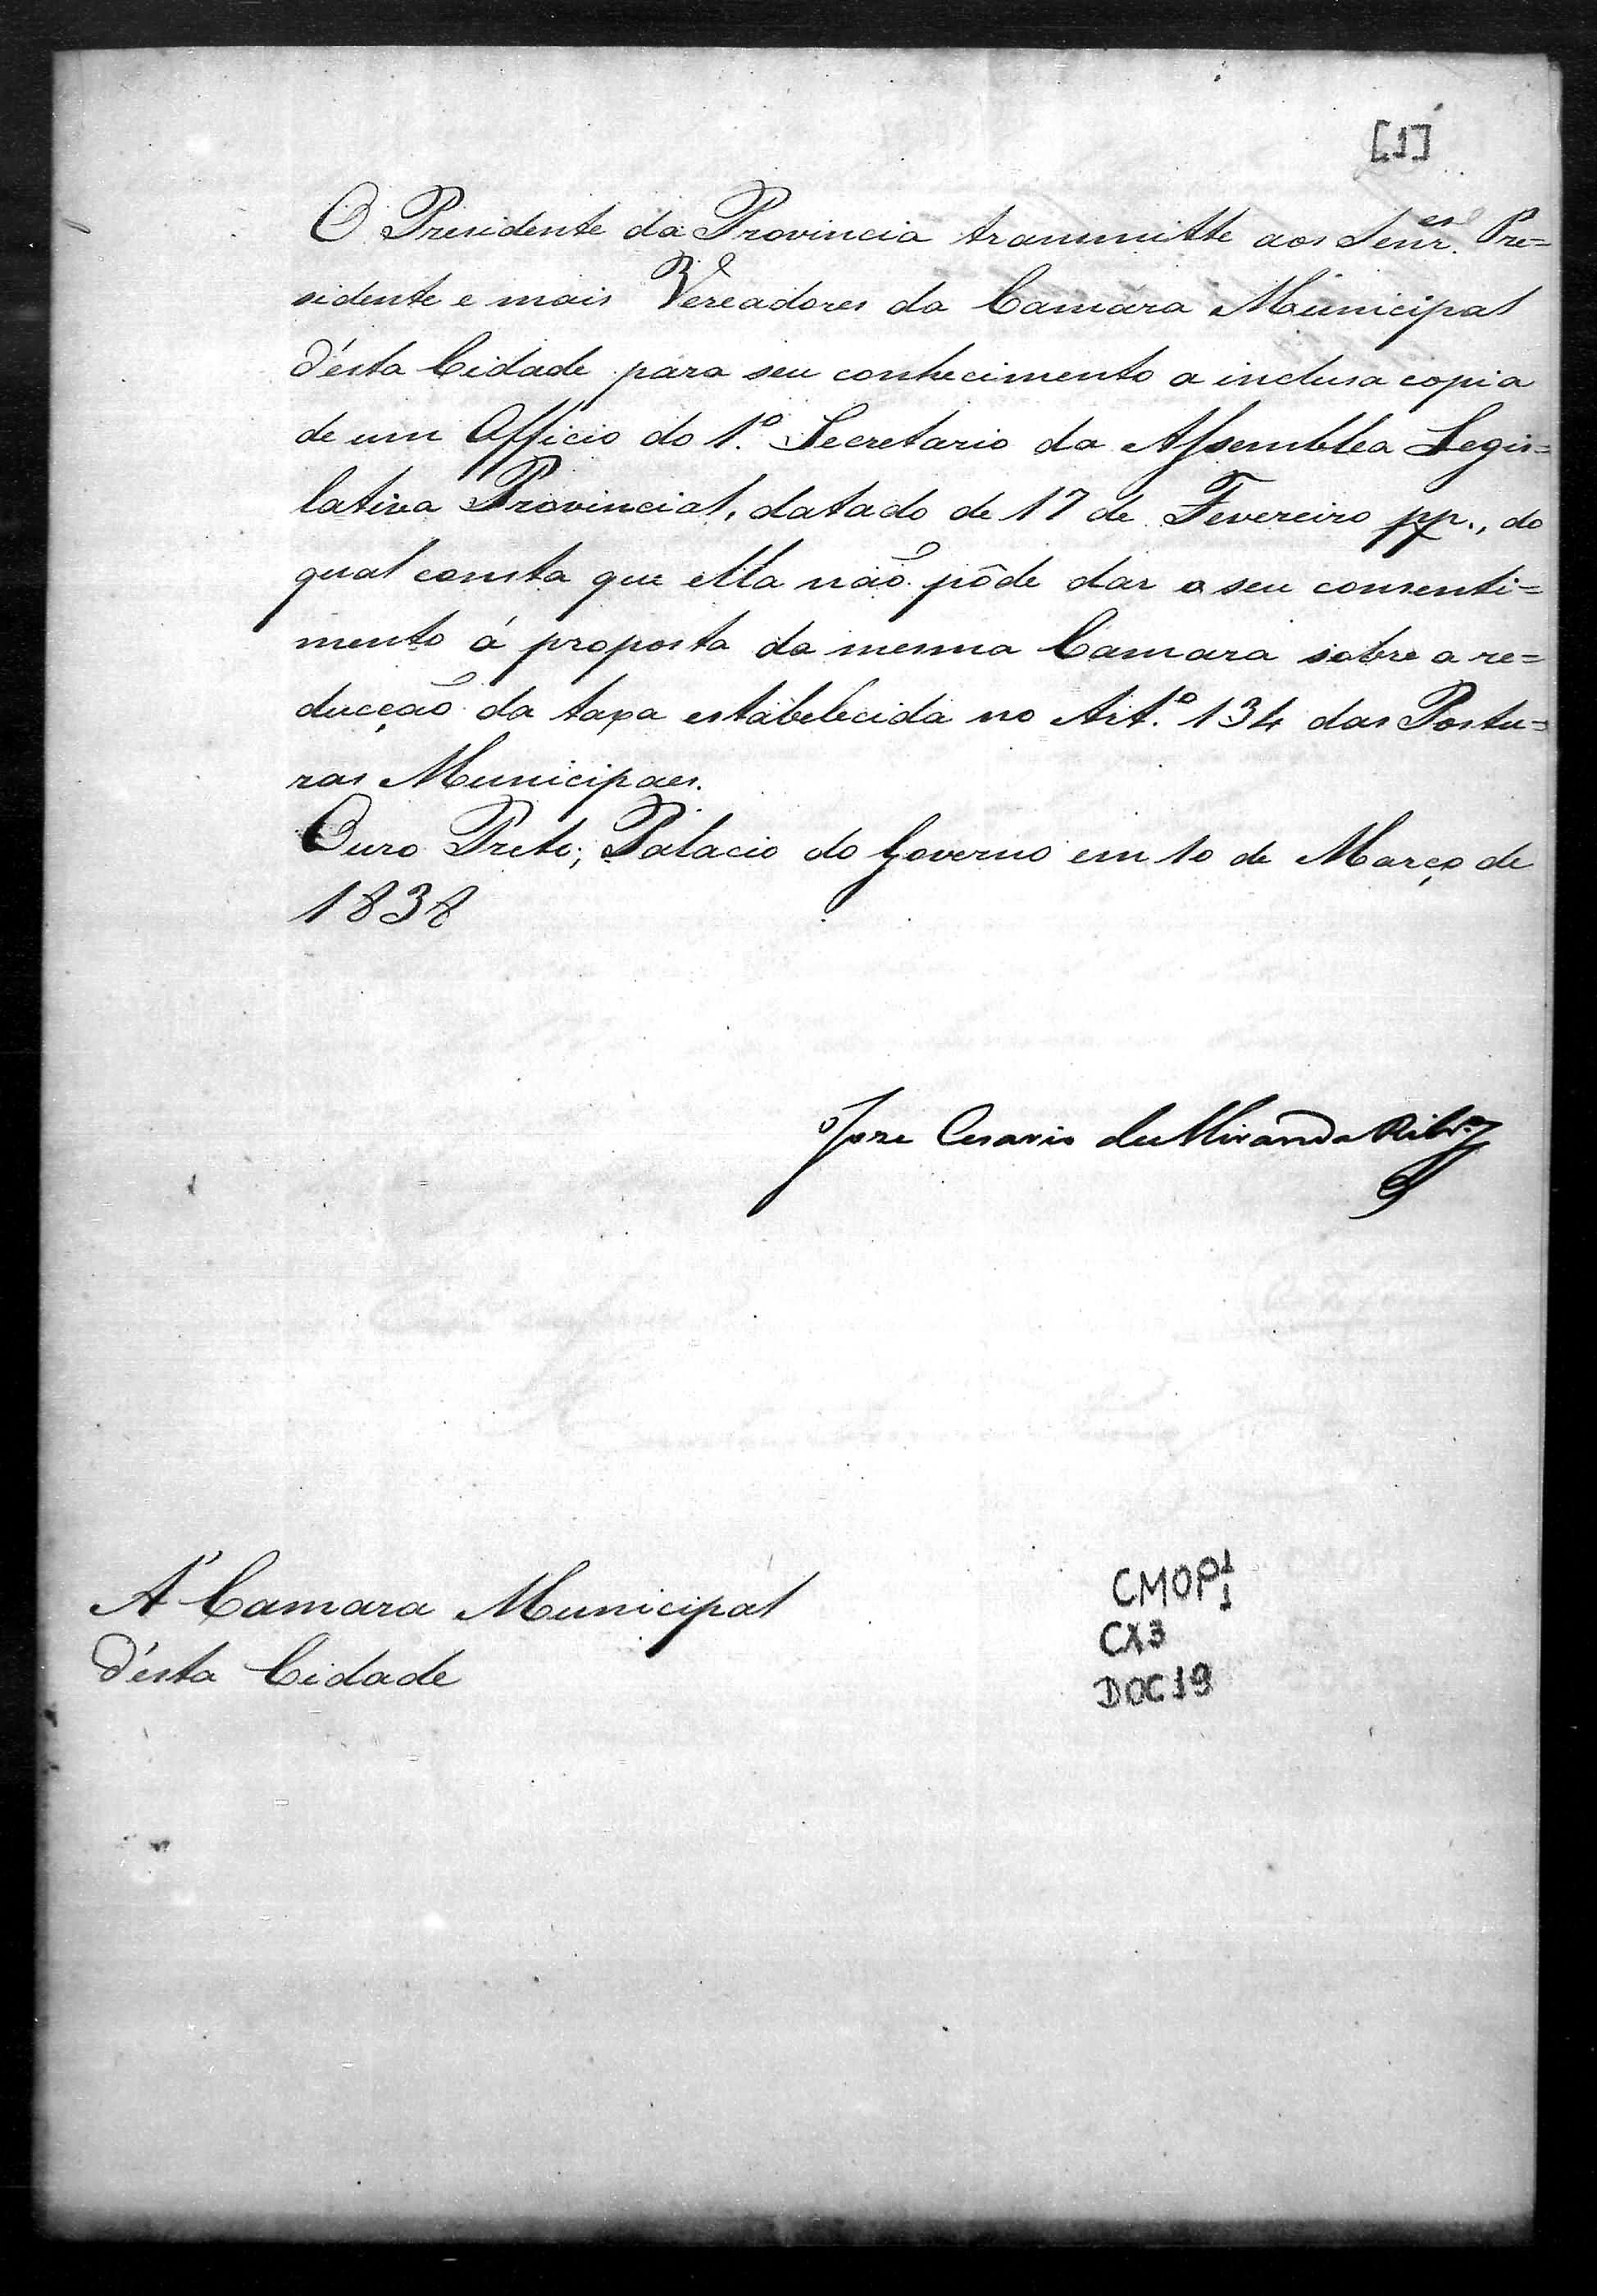 [1]
O Presidente da Provincia transmitte aos Senr.es Pre=
sidente e mais Vereadores da Camara Municipal
d'esta Cidade para seu conhecimento a inclusa copia
de um Officio do 1.º Secretario da Assemblea Legis=
lativa Provincial, datado de 17 de Fevereiro pp., do
qual consta que ella não pôde dar o seu consenti=
mento á proposta da mesma Camara sobre a re=
ducção da taxa estabelecida no Art.º 134 das Postu=
ras Municipaes.
Ouro Preto; Palacio do Governo em 10 de Março de
1838
Jose Cesario de Miranda Ribr.º
Á Camara Municipal
d'esta Cidade
CMOP 1/1
CX3
DOC 19